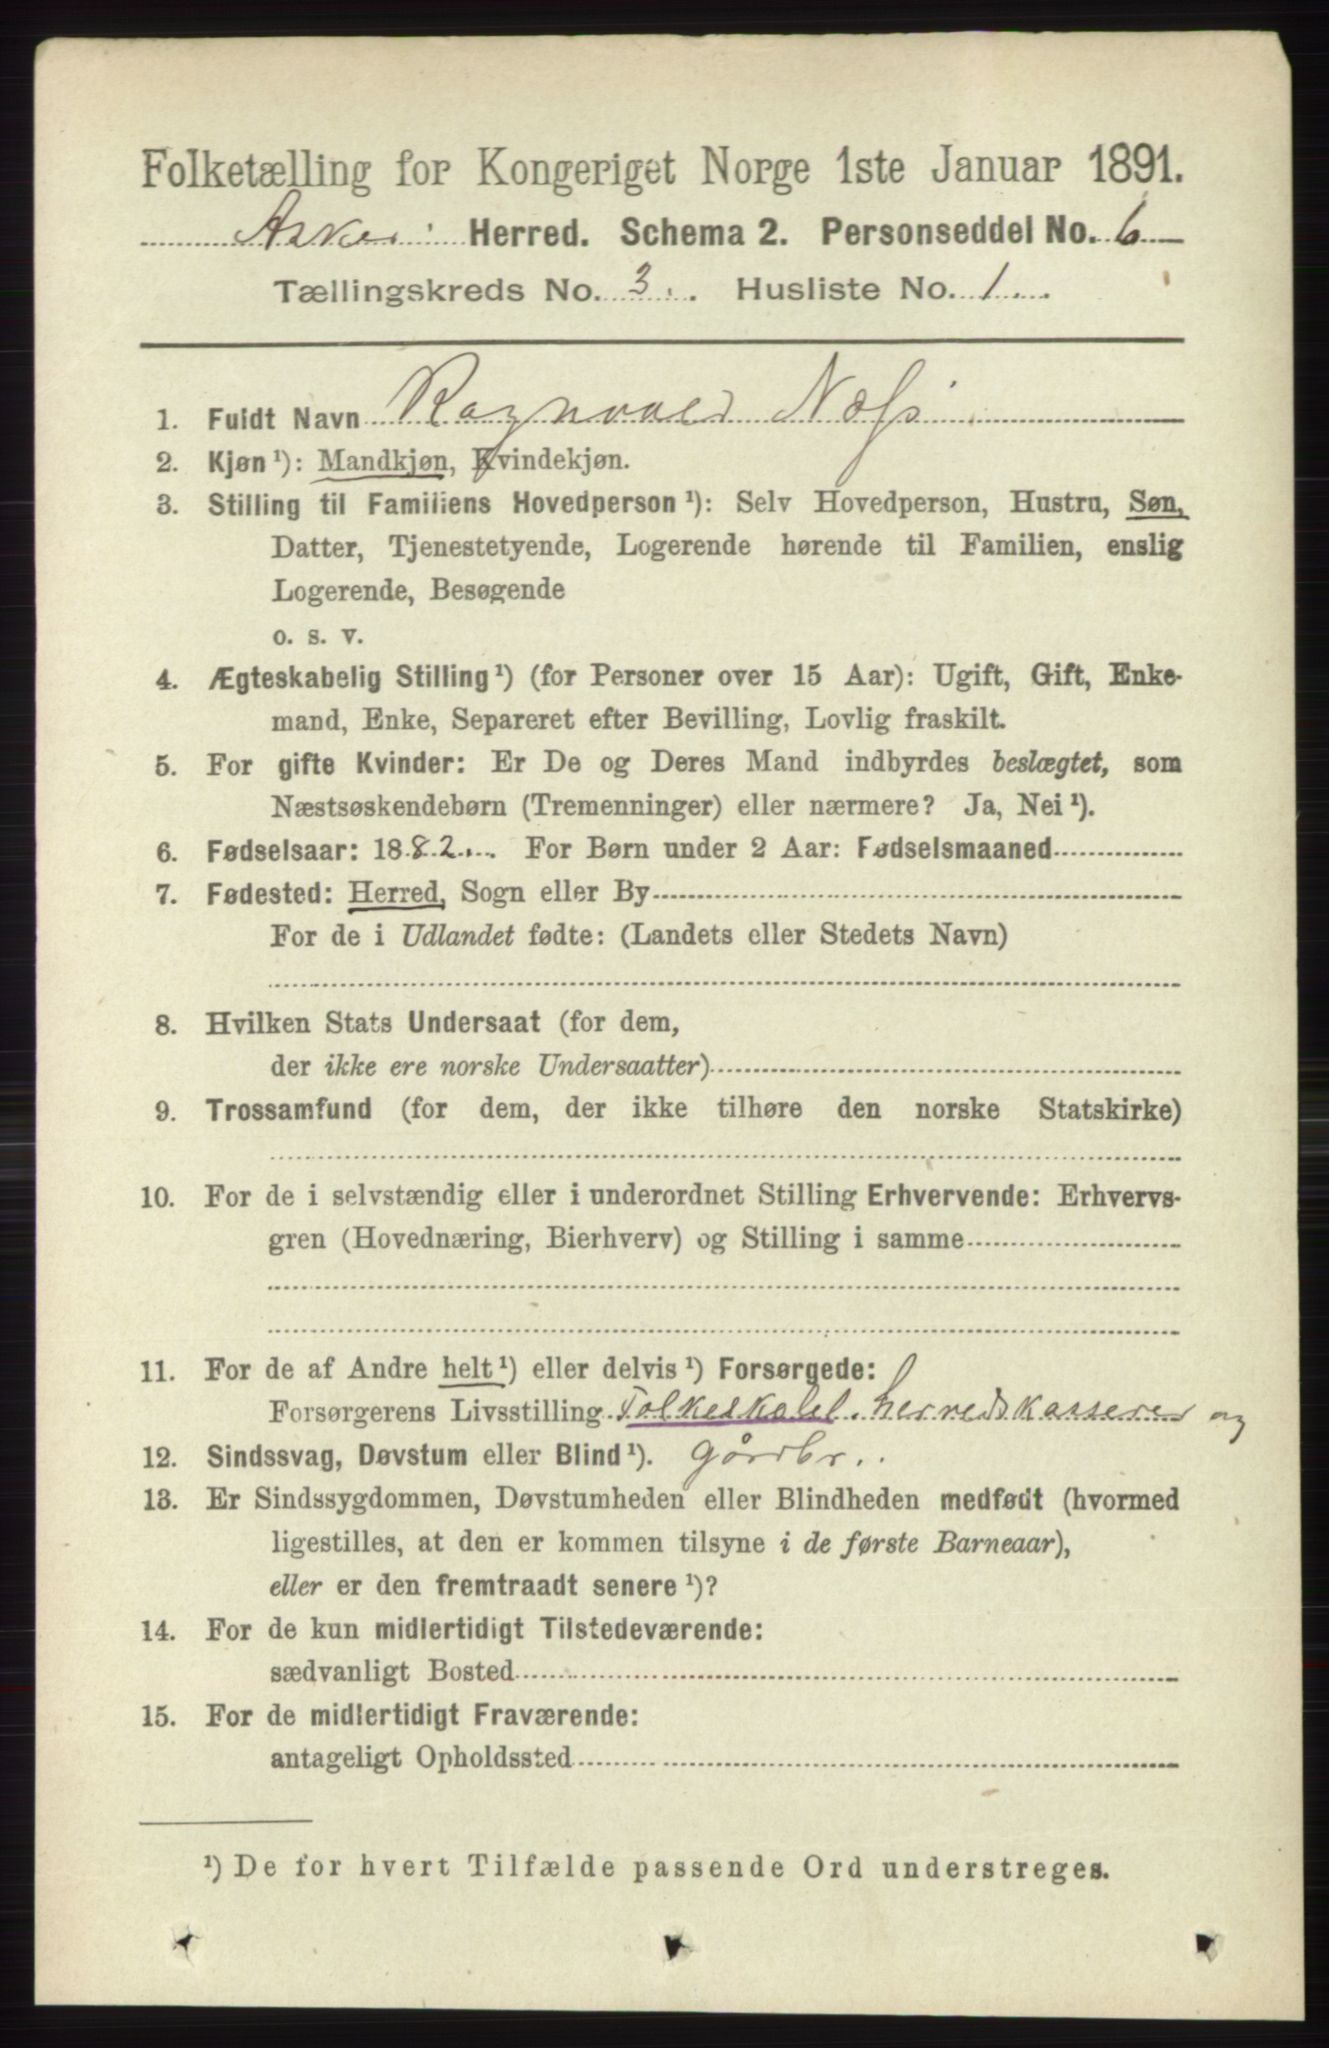 Folketælling for Kongeriget Norge 1ste Januar 1891.
Asker Herred. Schema 2. Personseddel No. 6
Tællingskreds No. 3. Husliste No. 1
1. Fuldt Navn Ragnvald Næss
2. Kjøn¹): Mandkjøn, Kvindekjøn.
3. Stilling til Familiens Hovedperson¹): Selv Hovedperson, Hustru, Søn,
Datter, Tjenestetyende, Logerende hørende til Familien, enslig
Logerende, Besøgende
o. s. v.
4. Ægteskabelig Stilling¹) (for Personer over 15 Aar): Ugift, Gift, Enke-
mand, Enke, Separeret efter Bevilling, Lovlig fraskilt.
5. For gifte Kvinder: Er De og Deres Mand indbyrdes beslægtet, som
Næstsøskendebørn (Tremenninger) eller nærmere? Ja, Nei¹).
6. Fødselsaar: 1882. For Børn under 2 Aar: Fødselsmaaned
7. Fødested: Herred, Sogn eller By
For de i Udlandet fødte: (Landets eller Stedets Navn)
8. Hvilken Stats Undersaat (for dem,
der ikke ere norske Undersaatter)
9. Trossamfund (for dem, der ikke tilhøre den norske Statskirke)
10. For de i selvstændig eller i underordnet Stilling Erhvervende: Erhvervs-
gren (Hovednæring, Bierhverv) og Stilling i samme
11. For de af Andre helt¹) eller delvis¹) Forsørgede:
Forsørgerens Livsstilling Folkeskolel. herredskasserer og
12. Sindssvag, Døvstum eller Blind¹). Gårdbr.
13. Er Sindssygdommen, Døvstumheden eller Blindheden medfødt (hvormed
ligestilles, at den er kommen tilsyne i de første Barneaar),
eller er den fremtraadt senere¹)?
14. For de kun midlertidigt Tilstedeværende:
sædvanligt Bosted
15. For de midlertidigt Fraværende:
antageligt Opholdssted
¹) De for hvert Tilfælde passende Ord understreges.